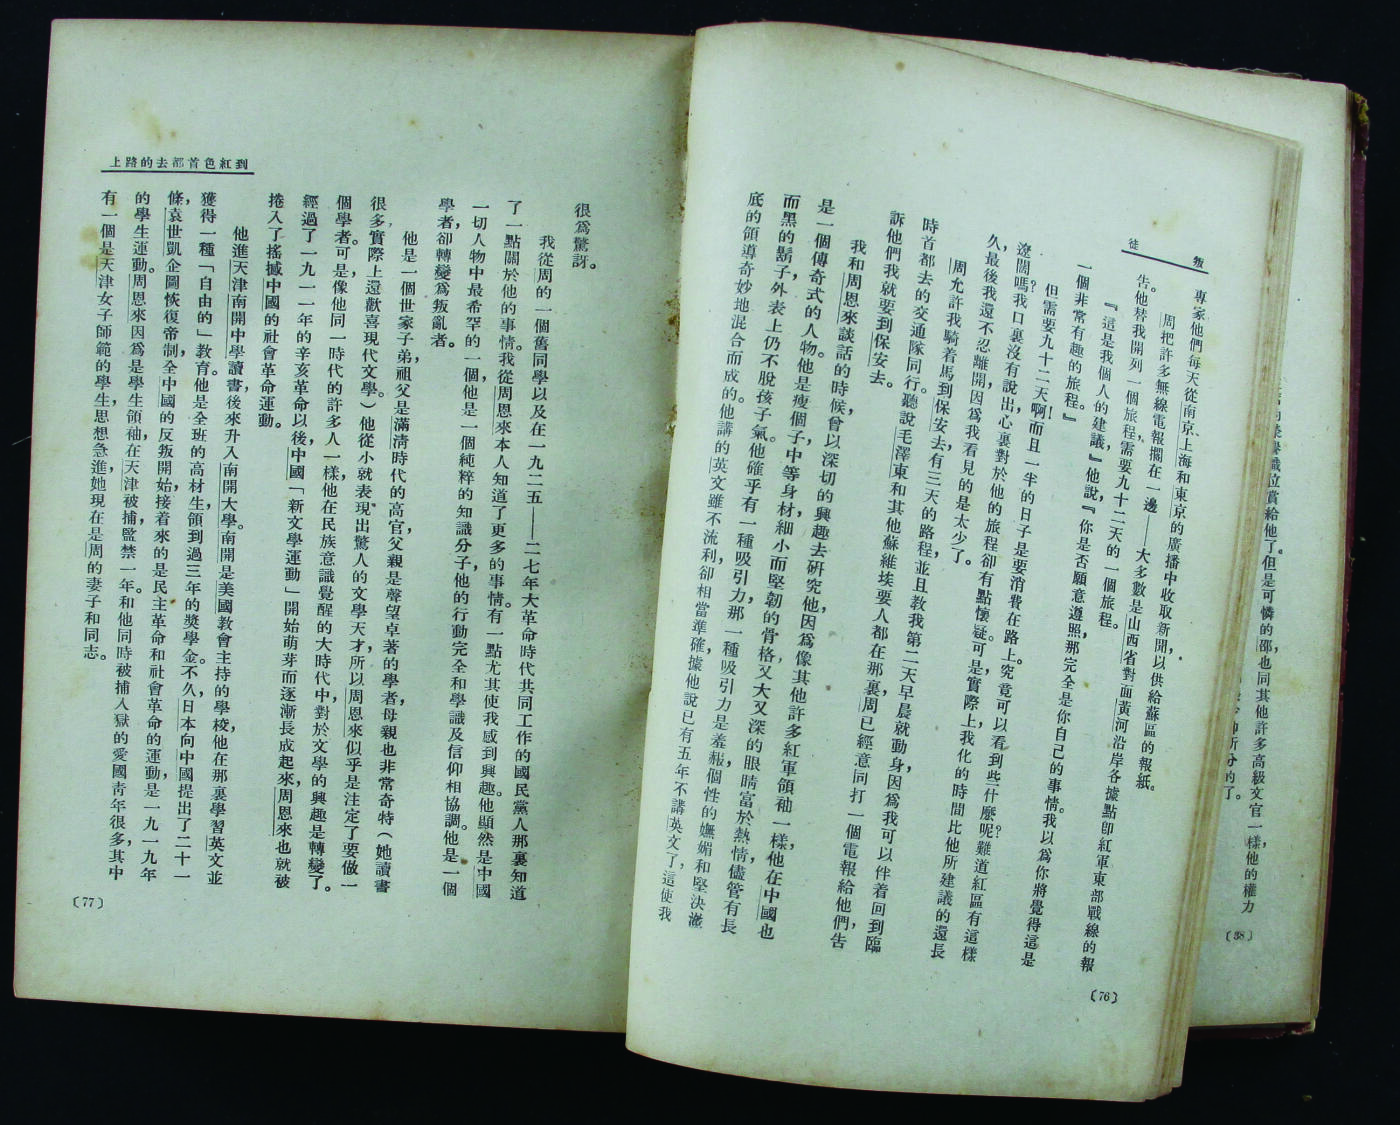 叛徒
專家他們每天從南京、上海和東京的廣播中收取新聞以供給蘇區的報紙。
周把許多無線電報擱在一邊——大多數是山西省對面黃河沿岸各據點卽紅軍東部戰線的報
告。他替我開列一個旅程需要九十二天的一個旅程。
『這是我個人的建議，』他說，『你是否願意遵照那完全是你自己的事情。我以爲你將覺得這是
一個非常有趣的旅程。』
但需要九十二天啊！而且一半的日子是要消費在路上。究竟可以看到些什麼呢？難道紅區有這樣
遼闊嗎？我口裏沒有說出，心裏對於他的旅程卻有點懷疑。可是，實際上我化的時間比他所建議的還長
久，最後我還不忍離開，因爲我看見的是太少了。
周允許我騎着馬到保安去，有三天的路程，並且教我第二天早晨就動身，因爲我可以伴着回到臨
時首都去的交通隊同行。聽說毛澤東和其他蘇維埃要人都在那裏，周已經意同打一個電報給他們，告
訴他們我就要到保安去。
我和周恩來談話的時候，曾以深切的興趣去研究他，因爲像其他許多紅軍領袖一樣，他在中國也
是一個傳奇式的人物。他是瘦個子，中等身材，細小而堅韌的骨格，又大又深的眼睛富於熱情，儘管有長
而黑的鬍子，外表上仍不脫孩子氣。他確乎有一種吸引力，那一種吸引力是羞赧個性的嫵媚和堅決澈
底的領導奇妙地混合而成的。他講的英文雖不流利，卻相當準確，據他說已有五年不講英文了，這使我
〔76〕
到紅色首都去的路上
很爲驚訝。
我從周的一個舊同學以及在一九二五——二七年大革命時代共同工作的國民黨人那裏知道
了一點關於他的事情。我從周恩來本人知道了更多的事情。有一點尤其使我感到興趣。他顯然是中國
一切人物中最希罕的一個，他是一個純粹的知識分子，他的行動完全和學識及信仰相協調。他是一個
學者，卻轉變爲叛亂者。
他是一個世家子弟，祖父是滿清時代的高官，父親是聲望卓著的學者，母親也非常奇特（她讀書
很多，實際上還歡喜現代文學。）他從小就表現出驚人的文學天才，所以周恩來似乎是注定了要做一
個學者。可是，像他同一時代的許多人一樣，他在民族意識覺醒的大時代中，對於文學的興趣是轉變了。
經過了一九一一年的辛亥革命以後，中國「新文學運動」開始萌芽而逐漸長成起來，周恩來也就被
捲入了搖撼中國的社會革命運動。
他進天津南開中學讀書，後來升入南開大學。南開是美國教會主持的學校，他在那裏學習英文並
獲得一種「自由的」教育。他是全班的高材生，領到過三年的獎學金。不久，日本向中國提出了二十一
條，袁世凱企圖恢復帝制，全中國的反叛開始，接着來的是民主革命和社會革命的運動，是一九一九年
的學生運動。周恩來因爲是學生領袖，在天津被捕，監禁一年。和他同時被捕入獄的愛國青年很多，其中
有一個是天津女子師範的學生，思想急進，她現在是周的妻子和同志。
〔77〕
賞給他了。但是可憐的邵也同其他許多高級文官一樣，他的權力